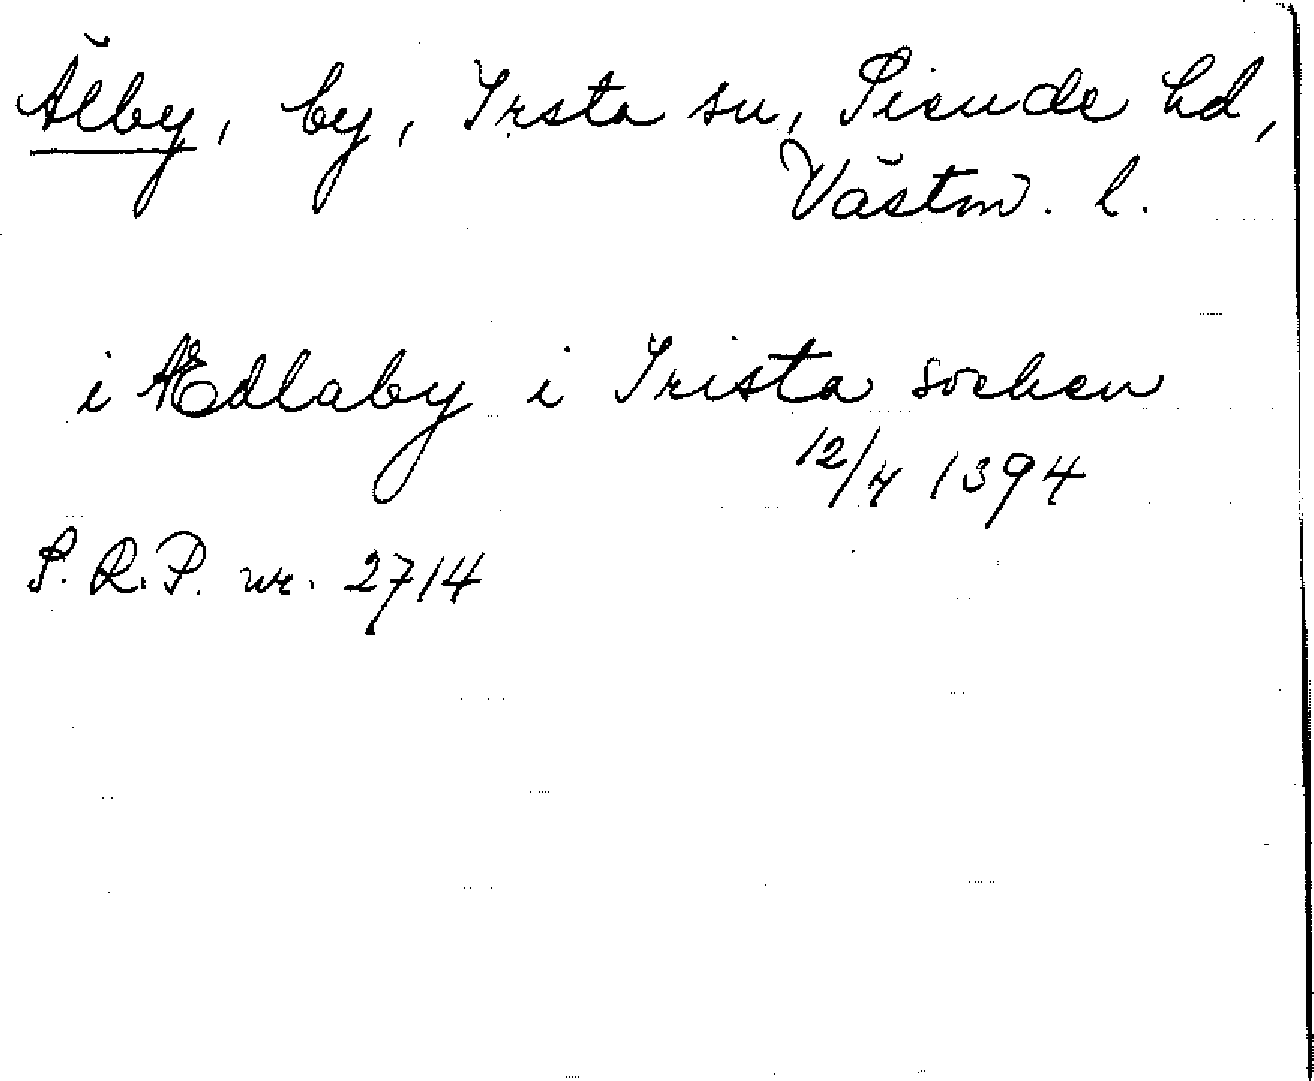 Älby, by, Irsta sn, Siende hd,
Västm. l.
i Ædlaby i Irista sochen
12/4 1394
S. R. P. nr. 2714